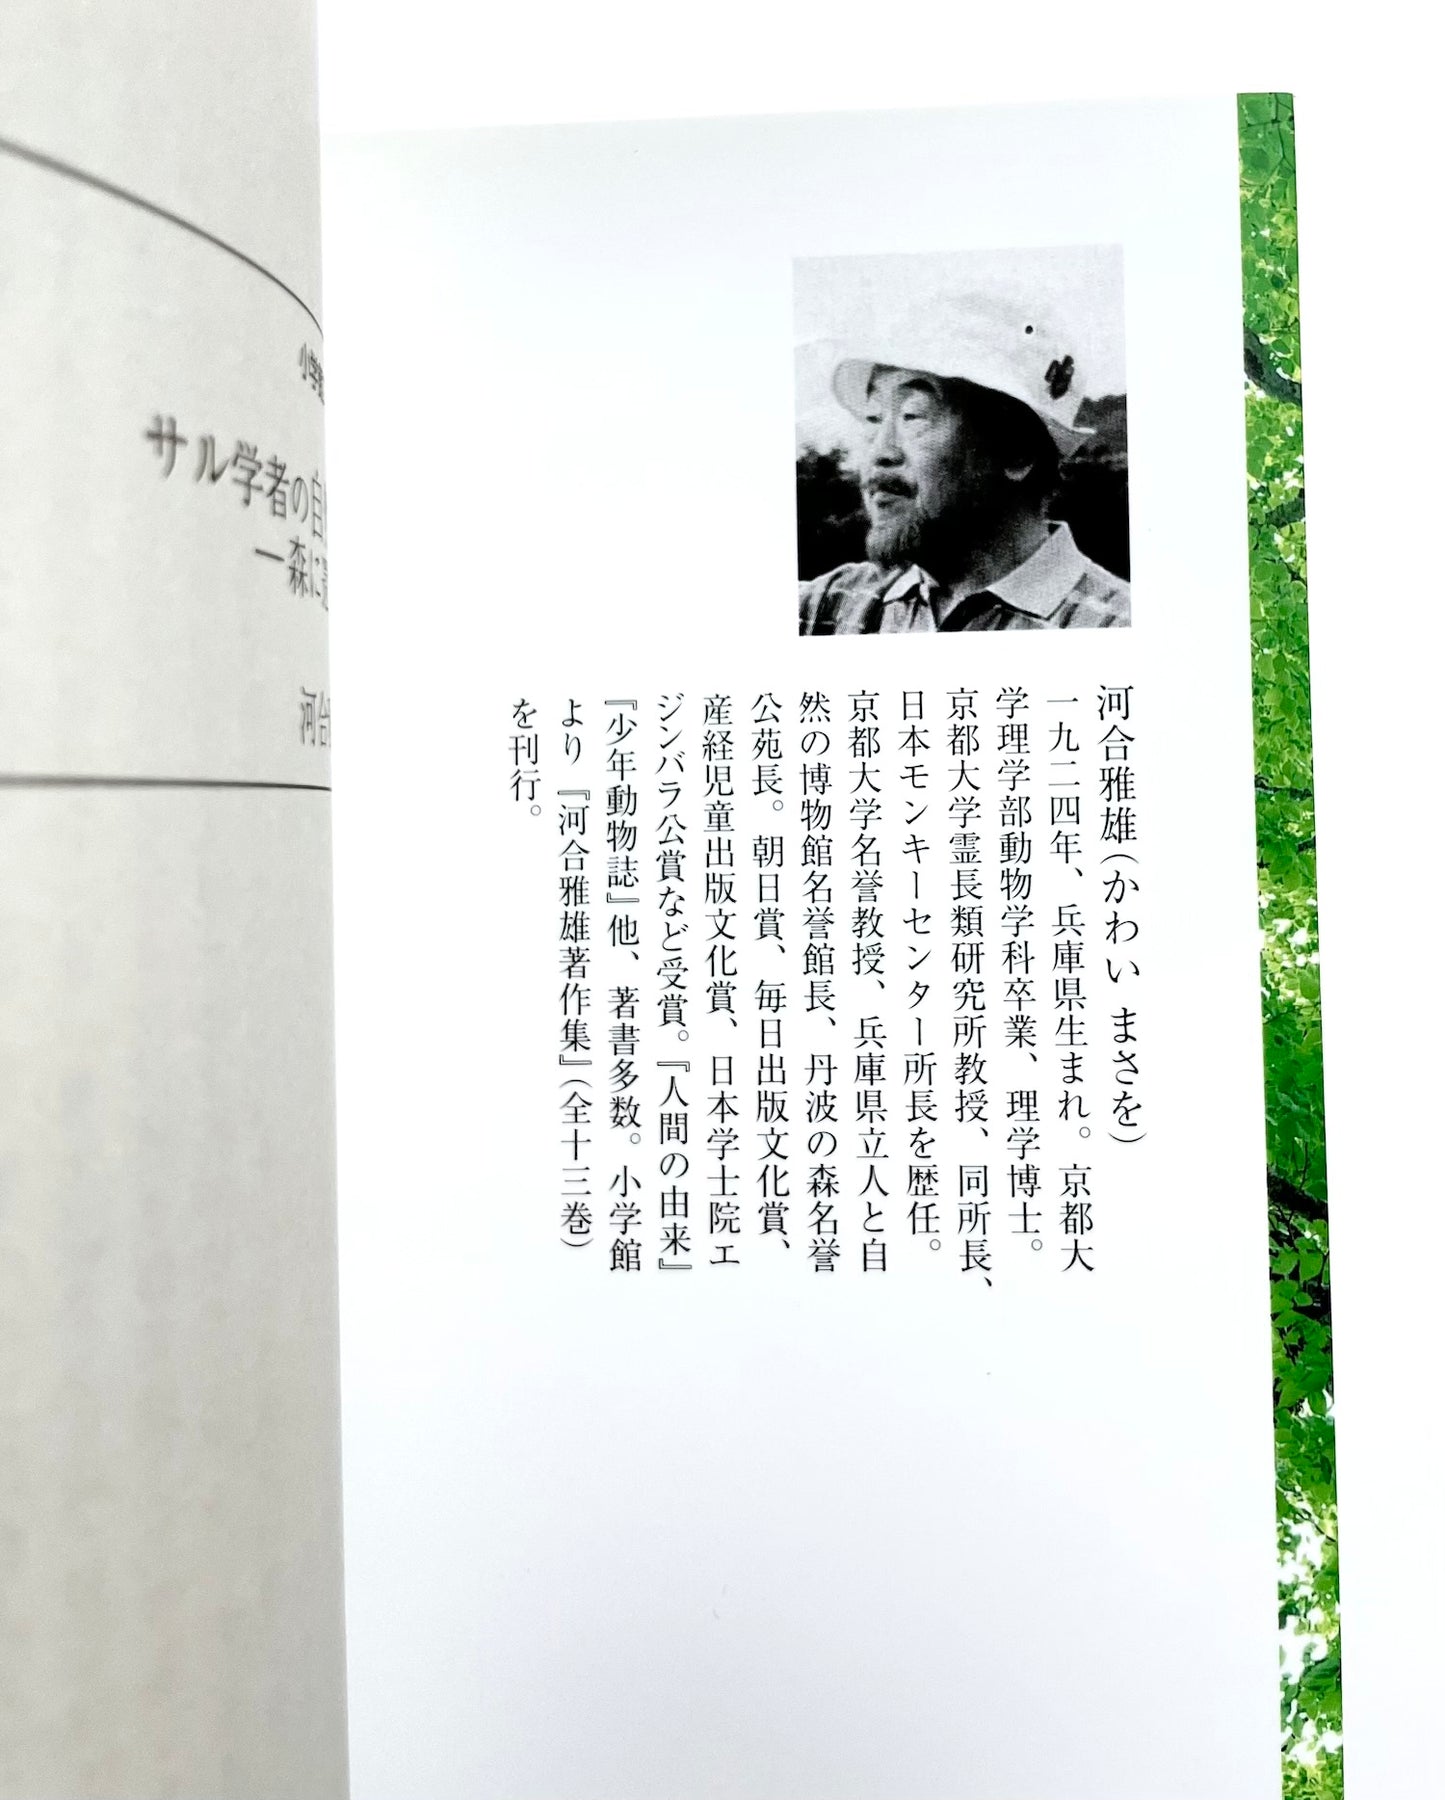 河合雅雄（かわい まさを）
一九二四年、兵庫県生まれ。京都大
学理学部動物学科卒業、理学博士。
京都大学霊長類研究所教授、同所長、
日本モンキーセンター所長を歴任。
京都大学名誉教授、兵庫県立人と自
然の博物館名誉館長、丹波の森名誉
公苑長。朝日賞、毎日出版文化賞、
産経児童出版文化賞、日本学士院エ
ジンバラ公賞など受賞。『人間の由来』
『少年動物誌』他、著書多数。小学館
より『河合雅雄著作集』（全十三巻）
を刊行。
サル学者の自
―森に
河合